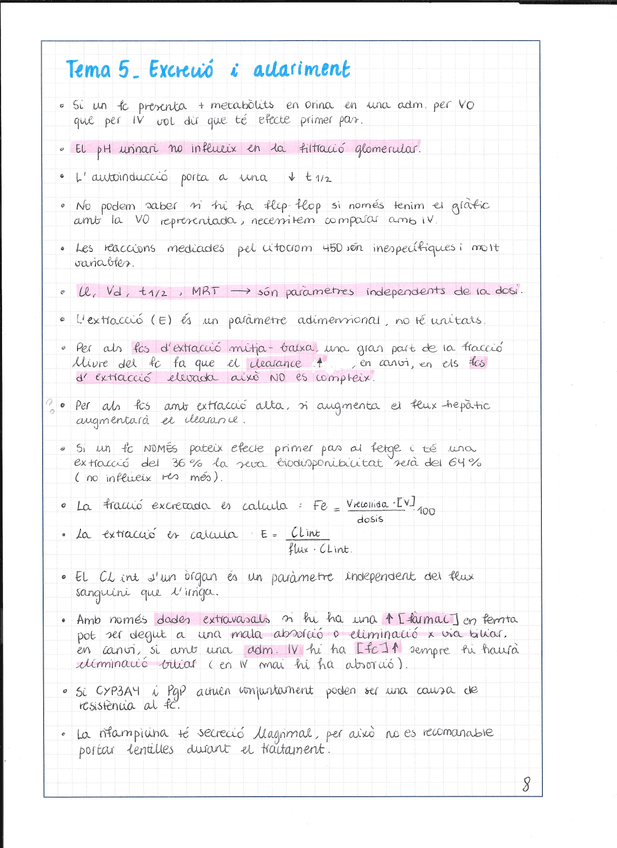 Tema 5_ Excreció i aclariment
• Si un fc presenta + metabòlits en orina en una adm. per VO
que per IV vol dir que té efecte primer pas.
• El pH urinari no influeix en la filtració glomerular.
• L'autoinducció porta a una ↓ t 1/2
• No podem saber si hi ha flip-flop si només tenim el gràfic
amb la VO representada, necessitem comparar amb IV.
• Les reaccions mediades pel citocrom 450 són inespecífiques i molt
variables.
• Cl, Vd, t1/2, MRT → són paràmetres independents de la dosi.
• L'extracció (E) és un paràmetre adimensional, no té unitats.
• Per als fcs d'extracció mitja-baixa, una gran part de la fracció
lliure del fc fa que el clearance ↑, en canvi, en els fcs
d'extracció elevada això NO es compleix.
?
• Per als fcs amb extracció alta, si augmenta el flux hepàtic
augmentarà el clearance.
• Si un fc NOMÉS pateix efecte primer pas al fetge i té una
extracció del 36% la seva biodisponibilitat serà del 64%
(no influeix res més).
• La fracció excretada es calcula: Fe = Vrecollida · [V] / dosis 100
• La extracció es calcula E = CLint / flux · CLint.
• EL CL int d'un òrgan és un paràmetre independent del flux
sanguini que l'irriga.
• Amb només dades extravasals si hi ha una ↑ [fàrmac] en femta
pot ser degut a una mala absorció o eliminació x via biliar,
en canvi, si amb una adm. IV hi ha [fc]↑ sempre hi haurà
eliminació biliar (en IV mai hi ha absorció).
• Si CYP3A4 i PgP actúen conjuntament poden ser una causa de
resistència al fc.
• La rifampicina té secreció llagrimal, per això no es recomanable
portar lentilles durant el tractament.
8